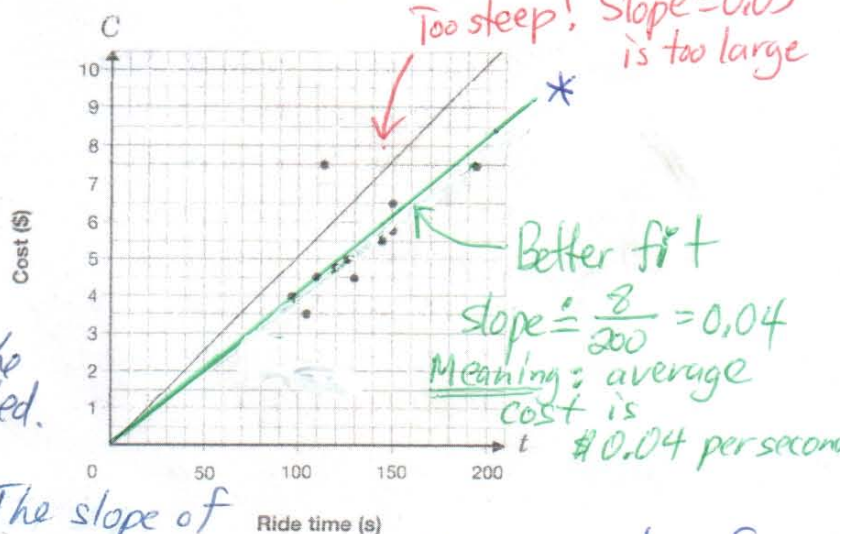 Too steep! Slope = 0.05
is too large
C
10
9
8
7
6
5
4
3
2
1
0
50
100
150
200
t
Cost ($)
Ride time (s)
*
Better fit
slope ≐ 8/200 = 0.04
Meaning: average
cost is
$0.04 per second
The slope of